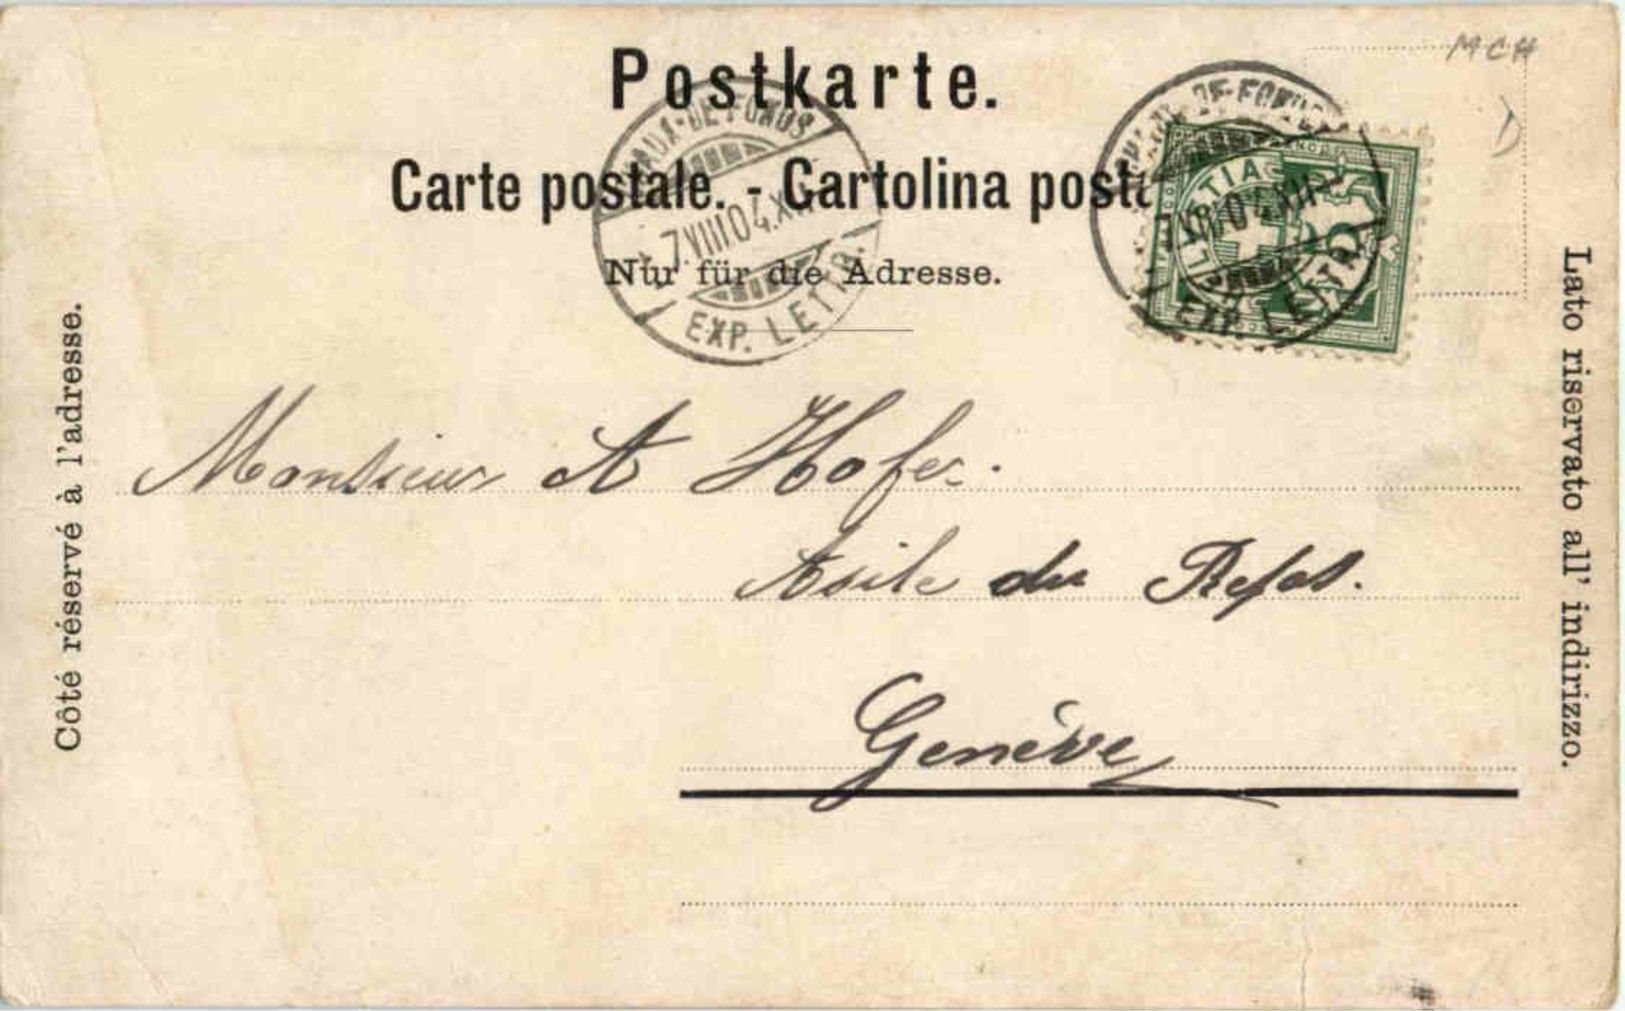 Postkarte.
MCH
Carte postale. - Cartolina posta
Nur für die Adresse.
CHAUX-DE-FONDS
7.VIII 04.XII
EXP. LETTR.
CHAUX-DE-FONDS
7.VIII 04.XII
EXP. LETTR.
Côté réservé à l'adresse.
Lato riservato all' indirizzo.
Monsieur A Hofer.
Asile du
Genève